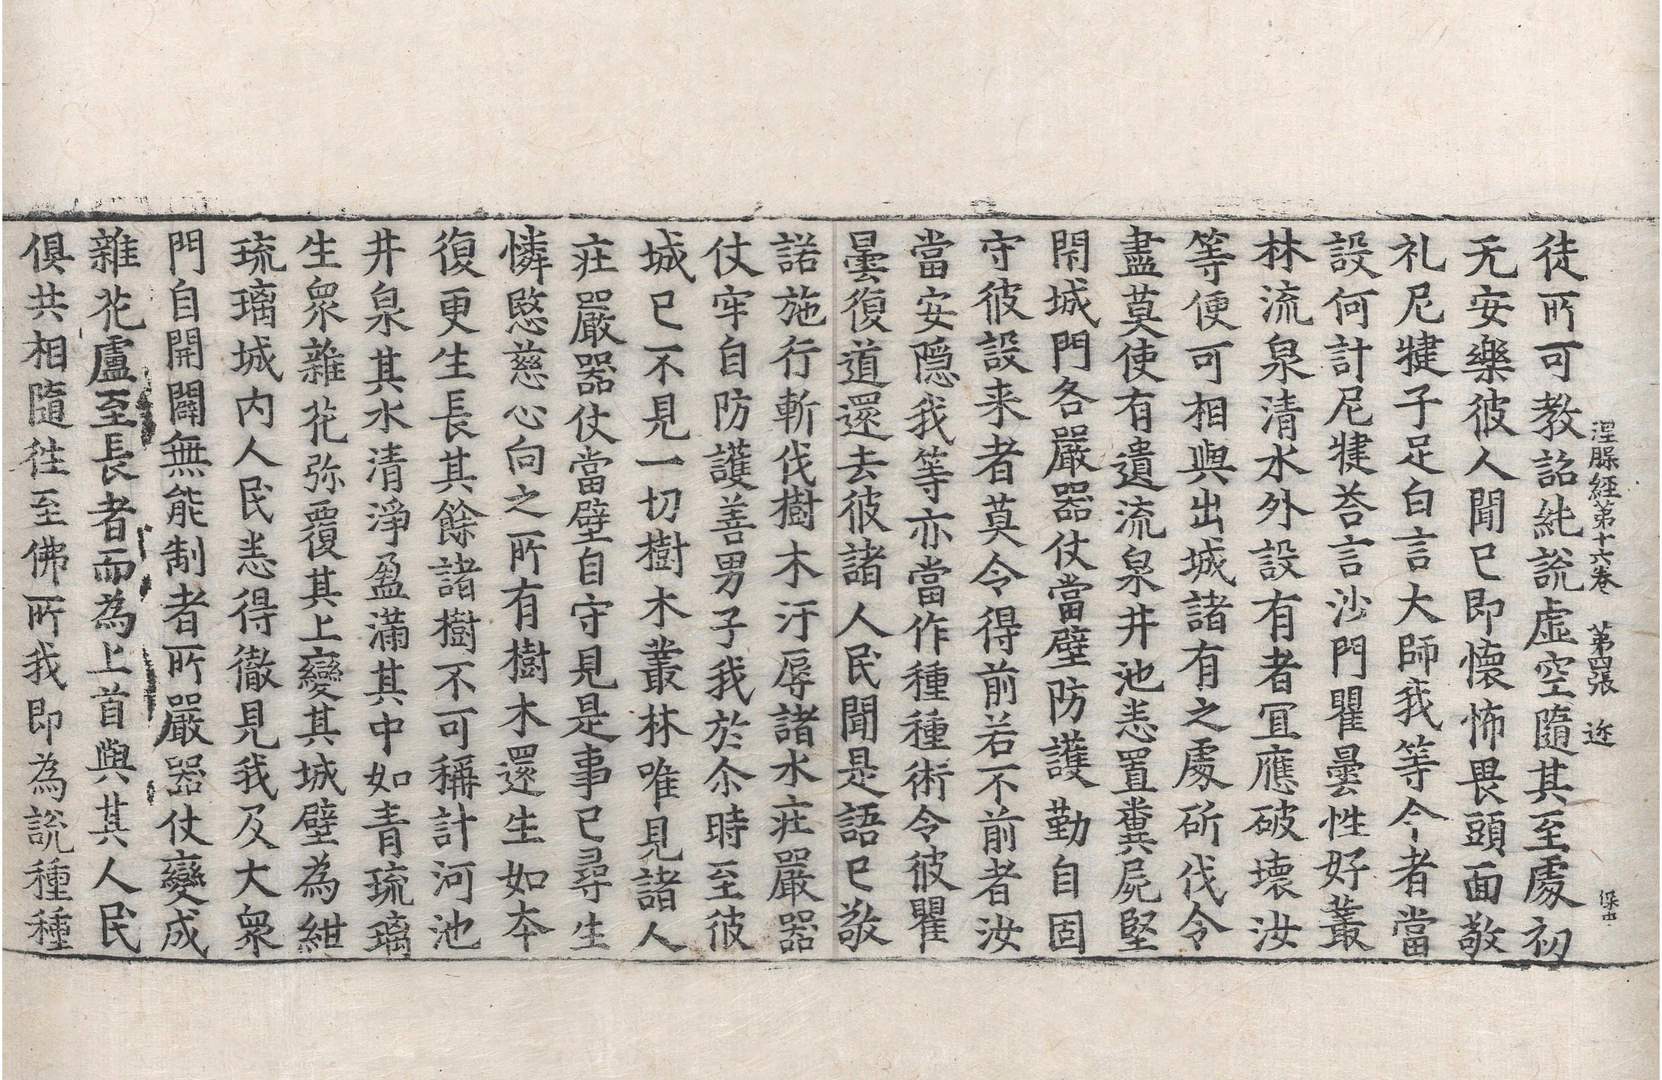 涅槃經第十六卷 第四張 迩
徒所可教詔純說虛空隨其至處初
无安樂彼人聞已即懷怖畏頭面敬
礼尼揵子足白言大師我等今者當
設何計尼揵荅言沙門瞿曇性好叢
林流泉清水外設有者冝應破壞汝
等便可相與出城諸有之處斫伐令
盡莫使有遺流泉井池恙置糞屍堅
閇城門各嚴器仗當壁防護勤自固
守彼設来者莫令得前若不前者汝
當安隱我等亦當作種種術令彼瞿
曇復道還去彼諸人民聞是語已敬
諾施行斬伐樹木汙辱諸水庄嚴器
仗牢自防護善男子我於尒時至彼
城已不見一切樹木叢林唯見諸人
庄嚴器仗當壁自守見是事已尋生
憐愍慈心向之所有樹木還生如夲
復更生長其餘諸樹不可稱計河池
井泉其水清淨盈滿其中如青琉璃
生衆雜花弥覆其上變其城壁為紺
琉璃城內人民恙得徹見我及大衆
門自開闢無能制者所嚴器仗變成
雜花盧至長者而為上首與其人民
俱共相隨往至佛所我即為說種種